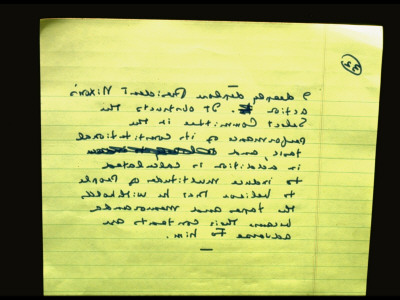 I deeply deplore President Nixon's
action. It obstructs the
Select Committee in the
performance of its constitutional
task, and
in addition is calculated
to induce multitudes of People
to believe that he withholds
the tapes and memoranda
because their contents are
adverse to him.